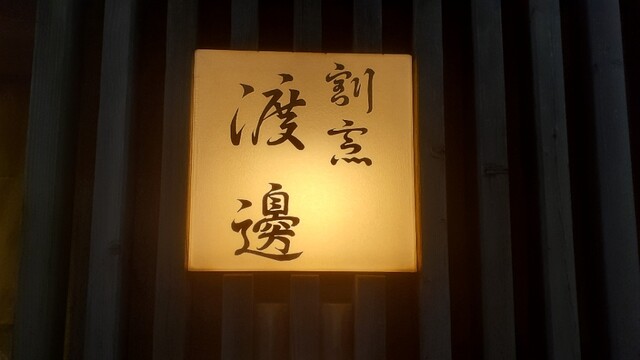 割烹
渡邊